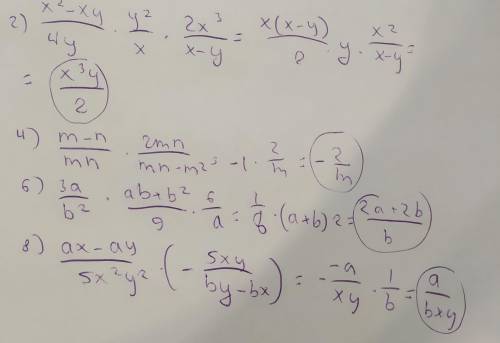 2) (x² - xy)/(4y) · y²/x · 2x³/(x-y) = x(x-y)/2 · y · x²/(x-y) =
= x³y/2
4) (m-n)/(mn) · 2mn/(mn-m²) = -1 · 2/m = -2/m
6) 3a/b² · (ab+b²)/9 · 6/a = 1/b · (a+b) 2 = (2a+2b)/b
8) (ax-ay)/(5x²y²) · (- 5xy/(by-bx)) = - -a/(xy) · 1/b = a/(bxy)